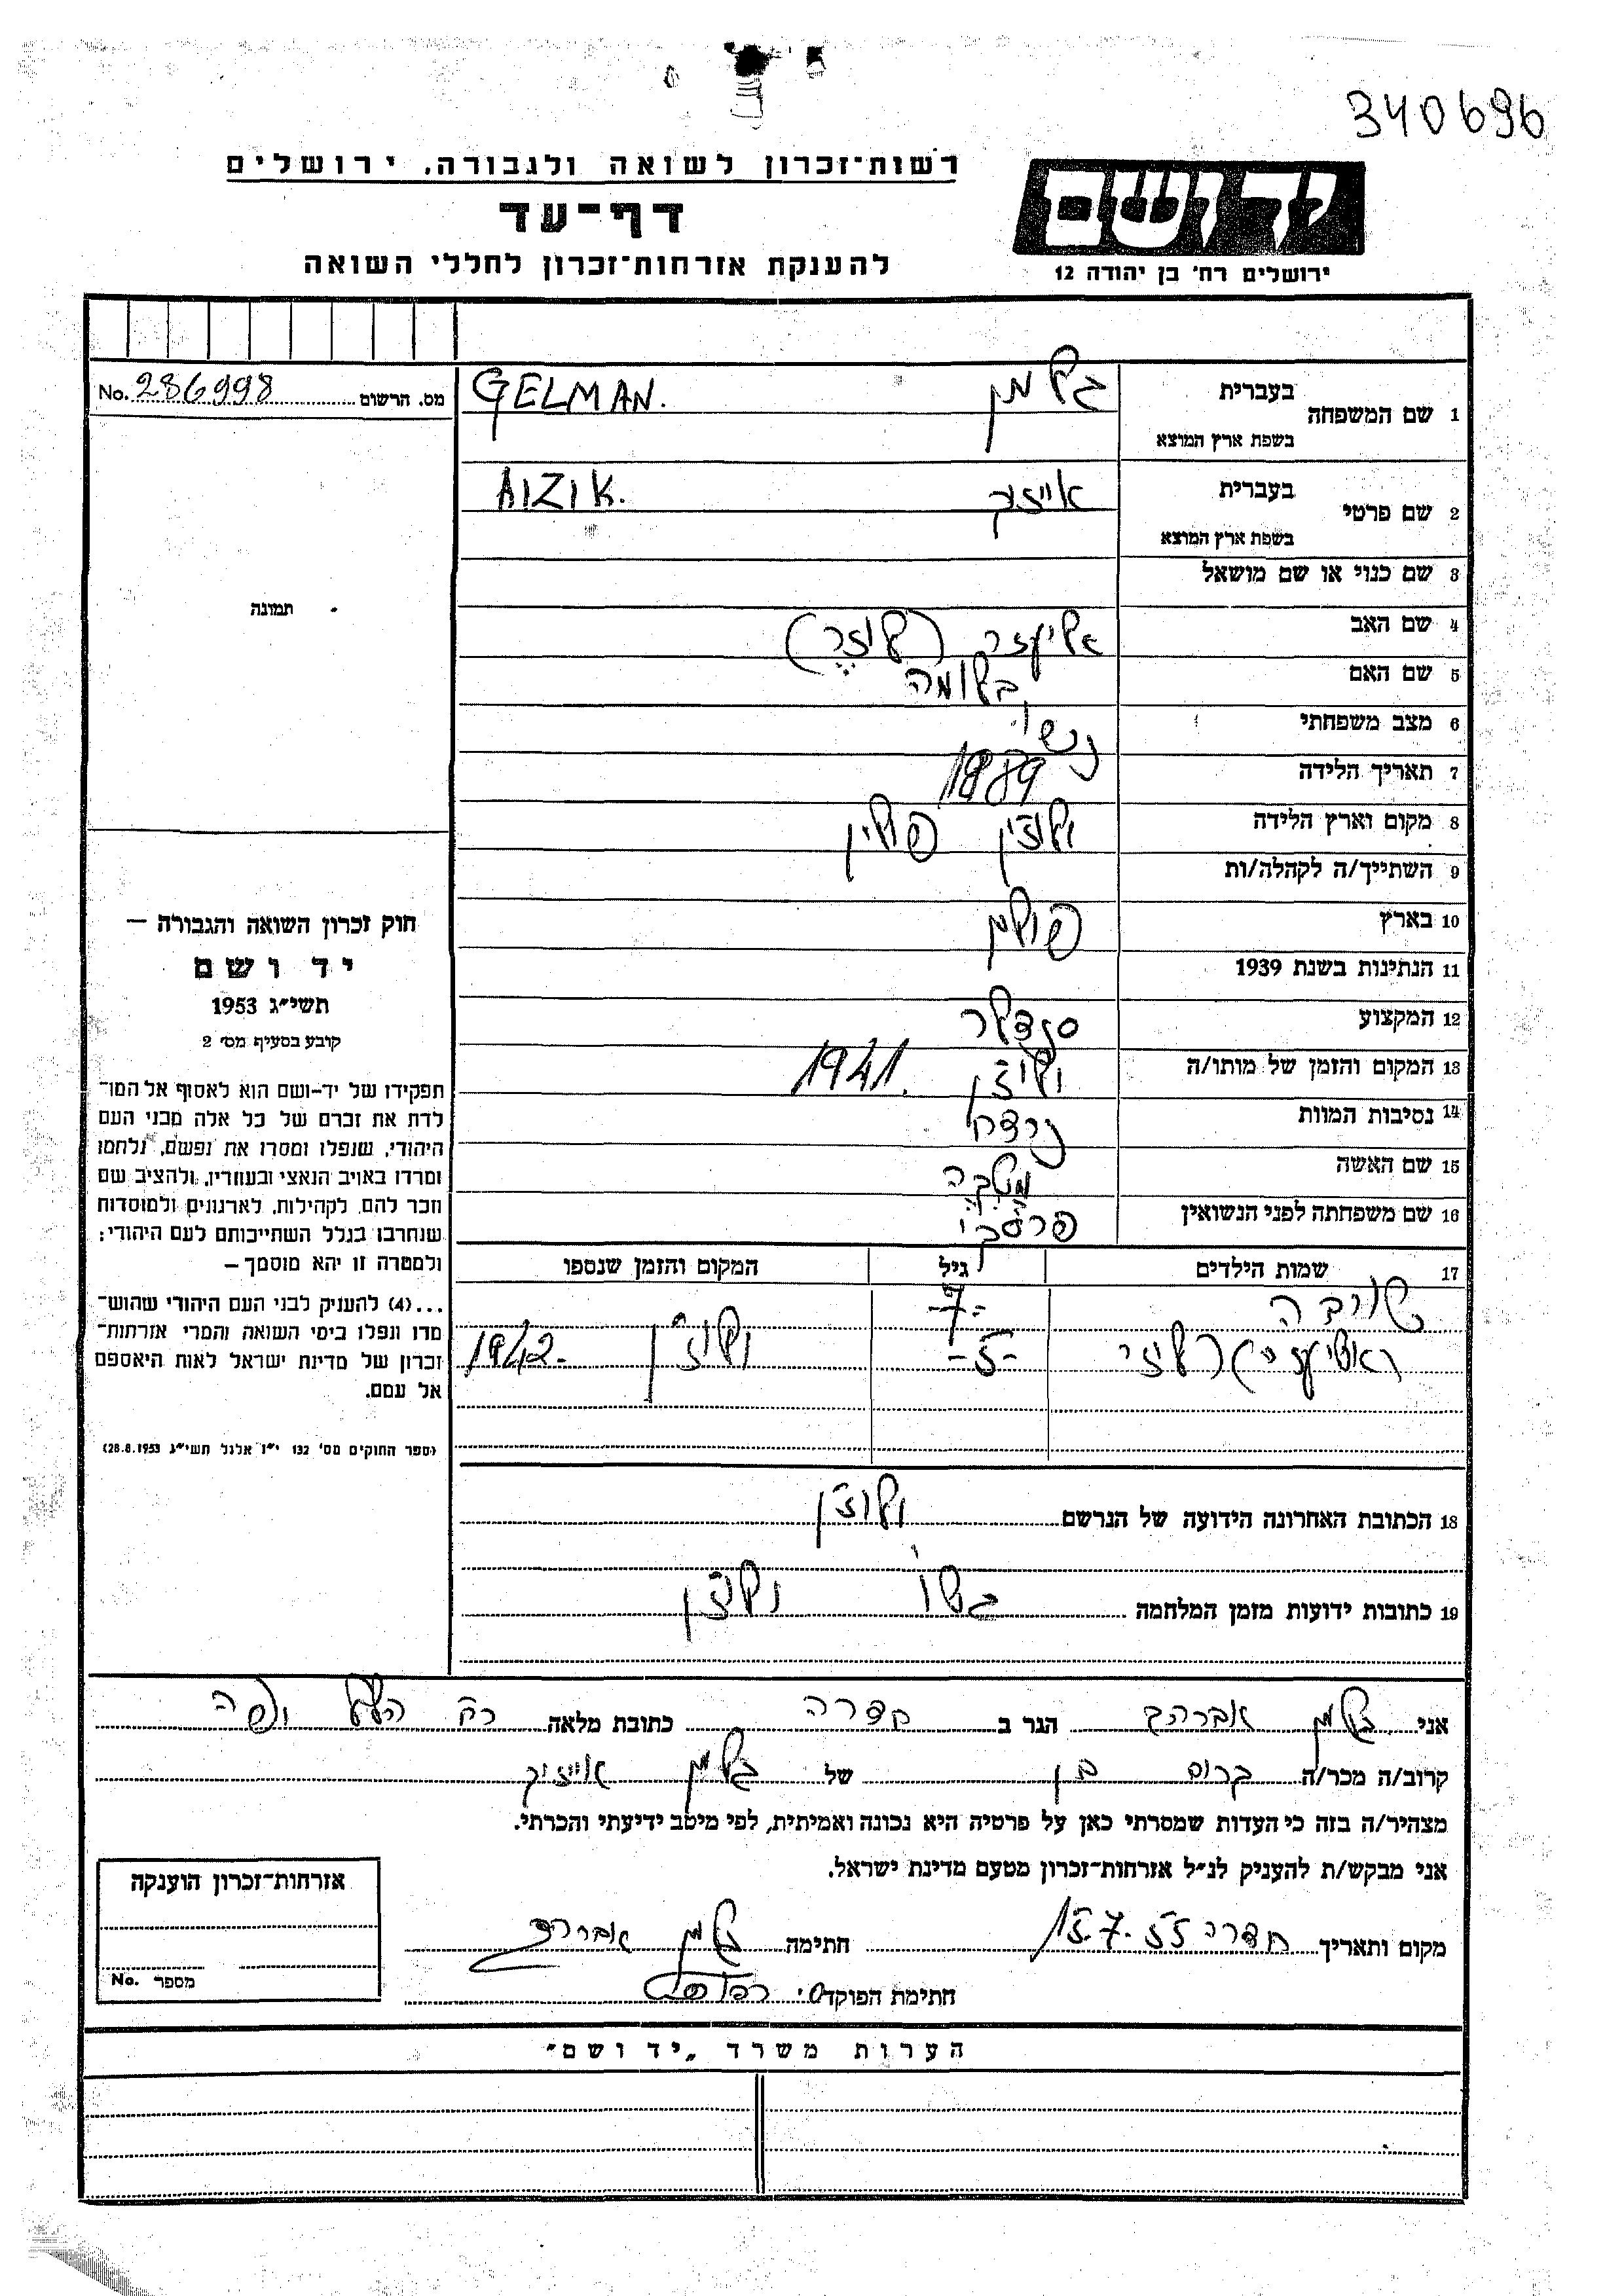 340696
רשות־זכרון לשואה ולגבורה, ירושלים
דף־עד
להענקת אזרחות־זכרון לחללי השואה
יד ושם
ירושלים רח׳ בן יהודה 12
מס. הרשום 286998 No.
1 שם המשפחה בעברית גלמן GELMAN.
בשפת ארץ המוצא
2 שם פרטי בעברית אייזיק AIZIK.
בשפת ארץ המוצא
3 שם כנוי או שם מושאל
4 שם האב אליעזר (לוזר)
5 שם האם בלומה
6 מצב משפחתי נשוי
7 תאריך הלידה 1889
8 מקום וארץ הלידה ולוז'ין פולין
9 השתייך/ה לקהלה/ות
10 בארץ פולין
11 הנתינות בשנת 1939
12 המקצוע סנדלר
13 המקום והזמן של מותו/ה ולוז'ין 1941.
14 נסיבות המוות נרצח
15 שם האשה
16 שם משפחתה לפני הנשואין פרסקי
17 שמות הילדים גיל המקום והזמן שנספו
-7-
-5- ולוז'ין 1942-
18 הכתובת האחרונה הידועה של הנרשם ולוז'ין
19 כתובות ידועות מזמן המלחמה גטו ולוז'ין
תמונה
חוק זכרון השואה והגבורה —
יד ושם
תשי״ג 1953
קובע בסעיף מס׳ 2
תפקידו של יד-ושם הוא לאסוף אל המו־
לדת את זכרם של כל אלה מבני העם
היהודי, שנפלו ומסרו את נפשם, נלחמו
ומרדו באויב הנאצי ובעוזריו, ולהציב שם
וזכר להם, לקהילות, לארגונים ולמוסדות
שנחרבו בגלל השתייכותם לעם היהודי;
ולמטרה זו יהא מוסמך —
...(4) להעניק לבני העם היהודי שהוש־
מדו ונפלו בימי השואה והמרי אזרחות־
זכרון של מדינת ישראל לאות היאספם
אל עמם.
(ספר החוקים מס׳ 132 י״ז אלול תשי״ג 28.8.1953)
אני גלמן אברהם הגר ב חדרה כתובת מלאה רח הלל יפה
קרוב/ה מכר/ה קרוב בן של גלמן אייזיק
מצהיר/ה בזה כי העדות שמסרתי כאן על פרטיה היא נכונה ואמיתית, לפי מיטב ידיעתי והכרתי.
אני מבקש/ת להעניק לנ״ל אזרחות־זכרון מטעם מדינת ישראל.
מקום ותאריך חדרה 15.7.55 חתימה גלמן אברהם
חתימת הפוקד
אזרחות־זכרון הוענקה
מספר No.
הערות משרד „יד ושם״